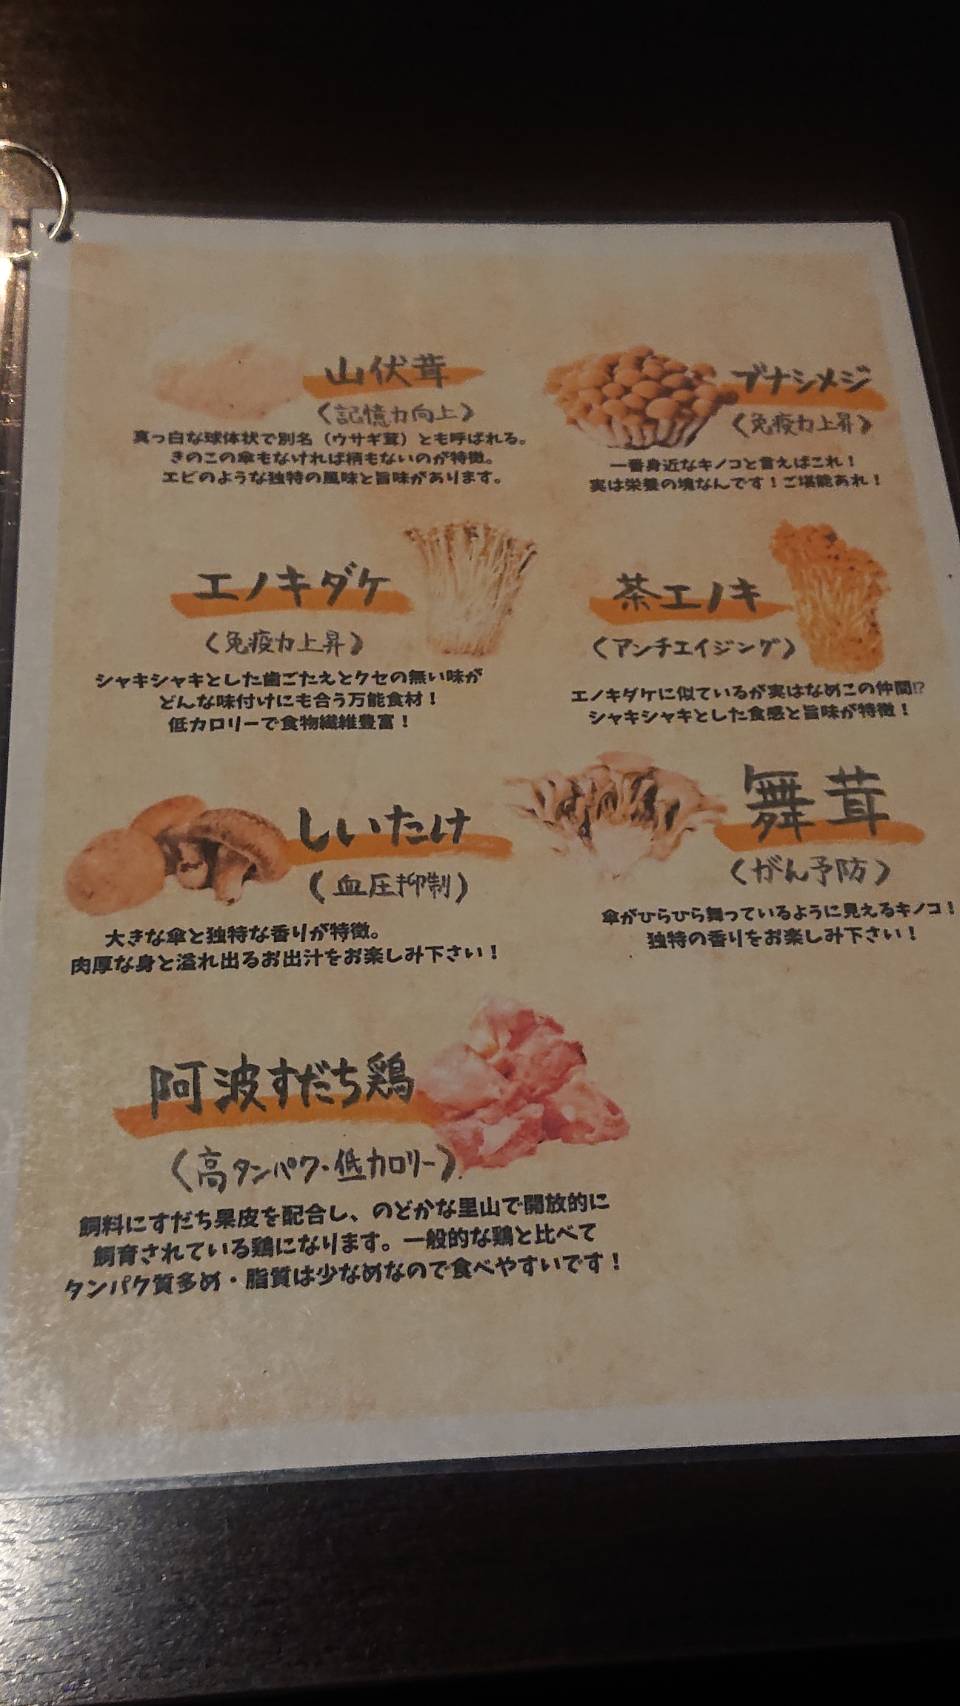 山伏茸
（記憶力向上）
真っ白な球体状で別名（ウサギ茸）とも呼ばれる。
きのこの傘もなければ柄もないのが特徴。
エビのような独特の風味と旨味があります。
ブナシメジ
（免疫力上昇）
一番身近なキノコと言えばこれ！
実は栄養の塊なんです！ご堪能あれ！
エノキダケ
（免疫力上昇）
シャキシャキとした歯ごたえとクセの無い味が
どんな味付けにも合う万能食材！
低カロリーで食物繊維豊富！
茶エノキ
（アンチエイジング）
エノキダケに似ているが実はなめこの仲間⁉
シャキシャキとした食感と旨味が特徴！
しいたけ
（血圧抑制）
大きな傘と独特な香りが特徴。
肉厚な身と溢れ出るお出汁をお楽しみ下さい！
舞茸
（がん予防）
傘がひらひら舞っているように見えるキノコ！
独特の香りをお楽しみ下さい！
阿波すだち鶏
（高タンパク・低カロリー）
飼料にすだち果皮を配合し、のどかな里山で開放的に
飼育されている鶏になります。一般的な鶏と比べて
タンパク質多め・脂質は少なめなので食べやすいです！